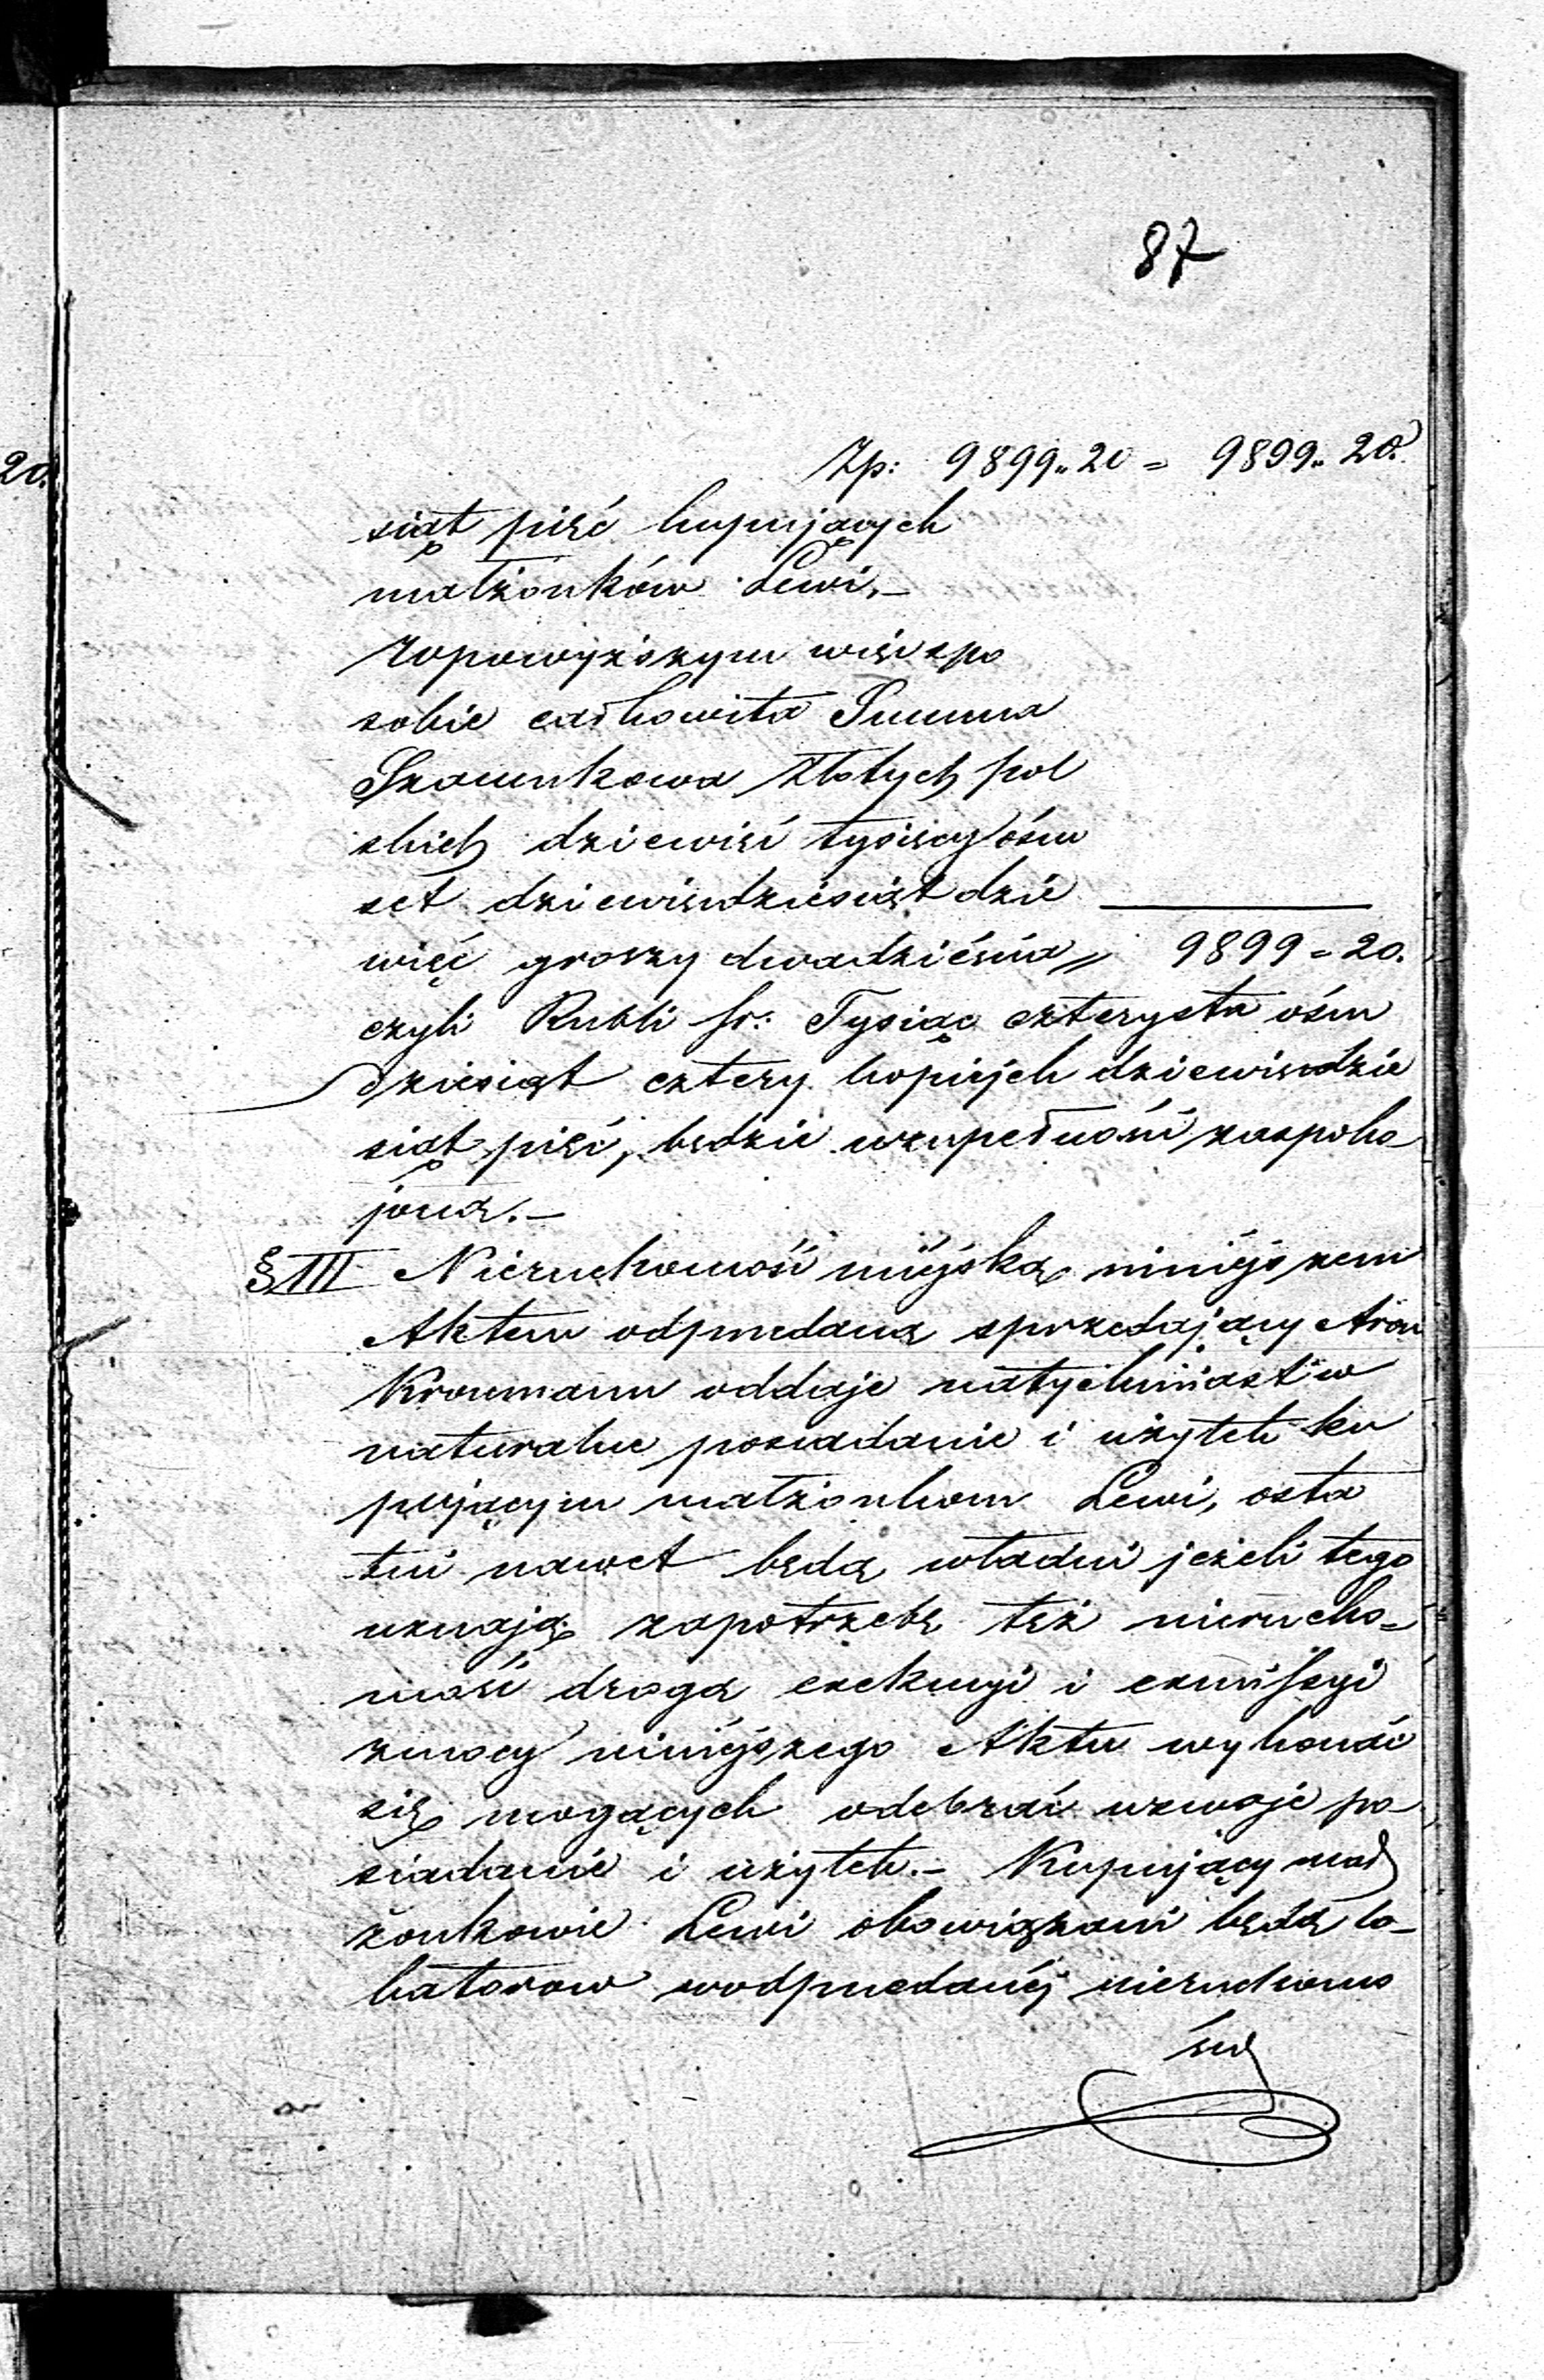 87
20.
Zp: 9899„20 = 9899„20.
siąt pięć kupujących
małżonków Lewi.–
W powyższym więc spo
sobie całkowita Summa
Szacunkowa Złotych pol
skich dziewięć tysięcy ośm
set dziewięćdziesiąt dzie
więć groszy dwadzieścia „ 9899 = 20.
czyli Rubli sr: Tysiąc czterysta ośm
dziesiąt cztery kopiejek dziewięćdzie
siąt pięć, będzie wzupełności zaspoko
joną.–
§ III Nieruchomość miejską niniejszem
Aktem odprzedaną sprzedający Aron
Kronmann oddaje natychmiast w
naturalne posiadanie i użytek ku
pującym małżonkom Lewi, osta
tni nawet będą władni jeżeli tego
uznają zapotrzebę też nierucho=
mość drogą exekucyi i exmissyi
zmocy niniejszego Aktu wykonać
się mogących odebrać wswoje po
siadanie i użytek.– Kupujący mał
żonkowie Lewi obowiązani będą lo-
katorow wodprzedanej nieruchomo
ści